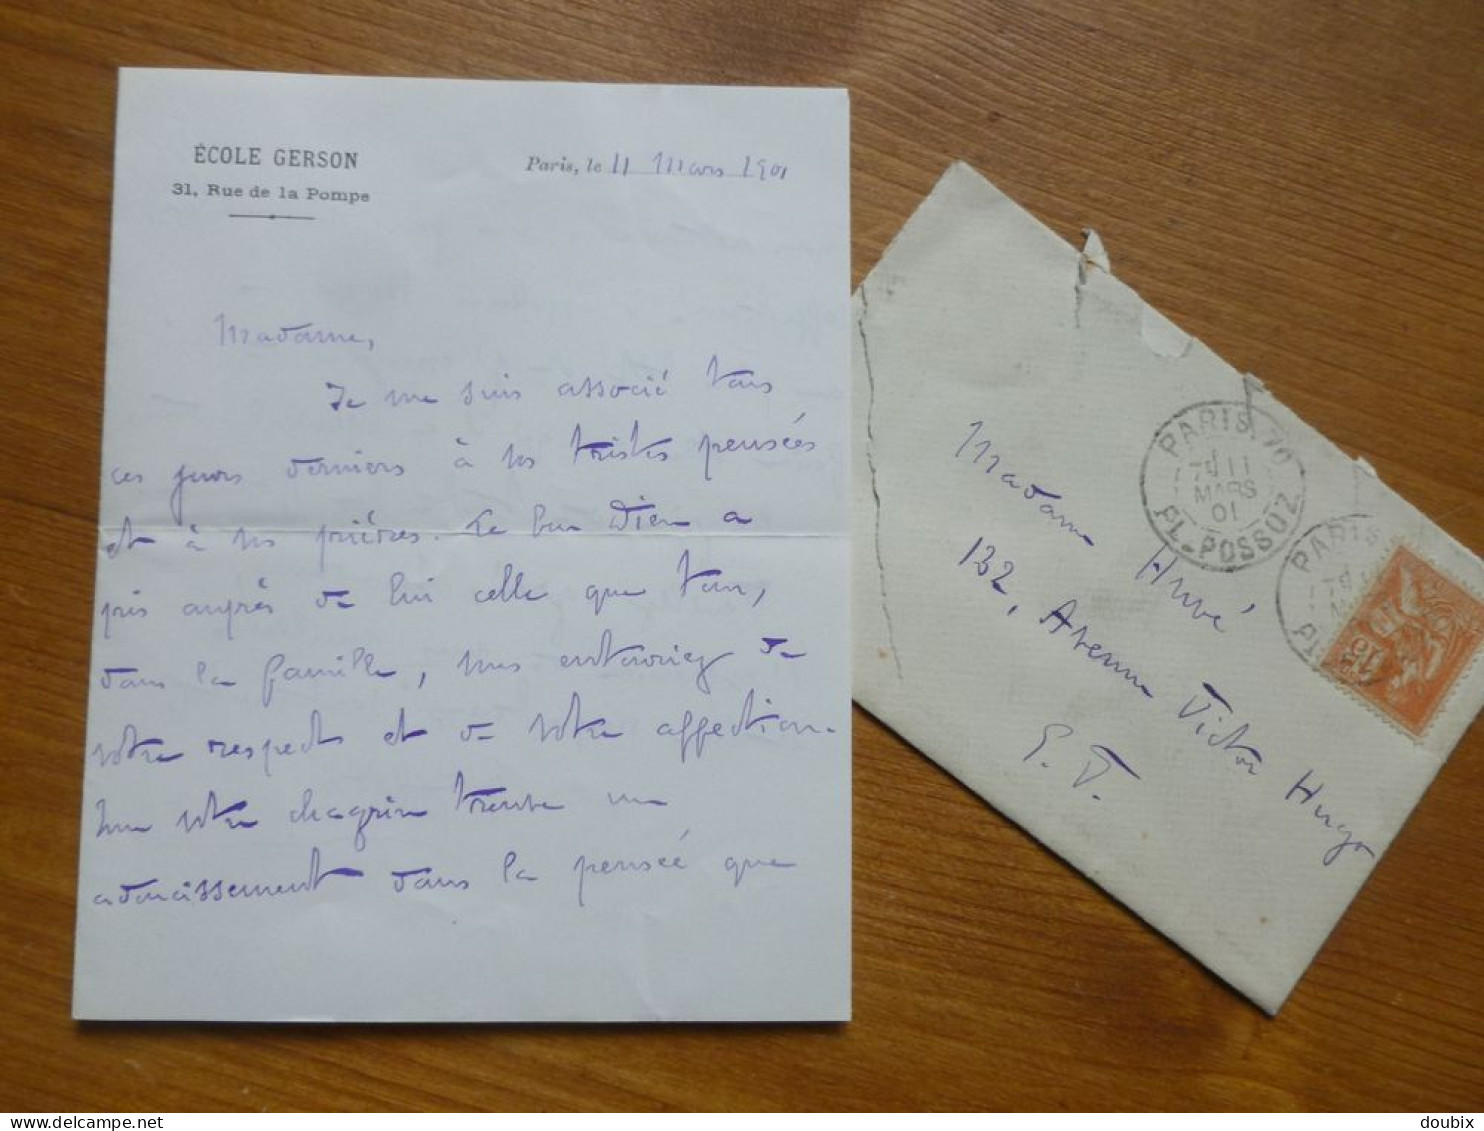 ÉCOLE GERSON
31, Rue de la Pompe
Paris, le 11 Mars 1901
Madame,
Je me suis associé tous
ces jours derniers à vos tristes pensées
et à vos prières. Le bon Dieu a
pris auprès de lui celle que tous,
dans la famille, vous entouriez de
votre respect et de votre affection.
Que votre chagrin trouve un
adoucissement dans la pensée que
Madame Hervé
132, Avenue Victor Hugo
E. V.
PARIS 70
7E 11
MARS
01
PL. POSSOZ 2
PARIS
15
doubix